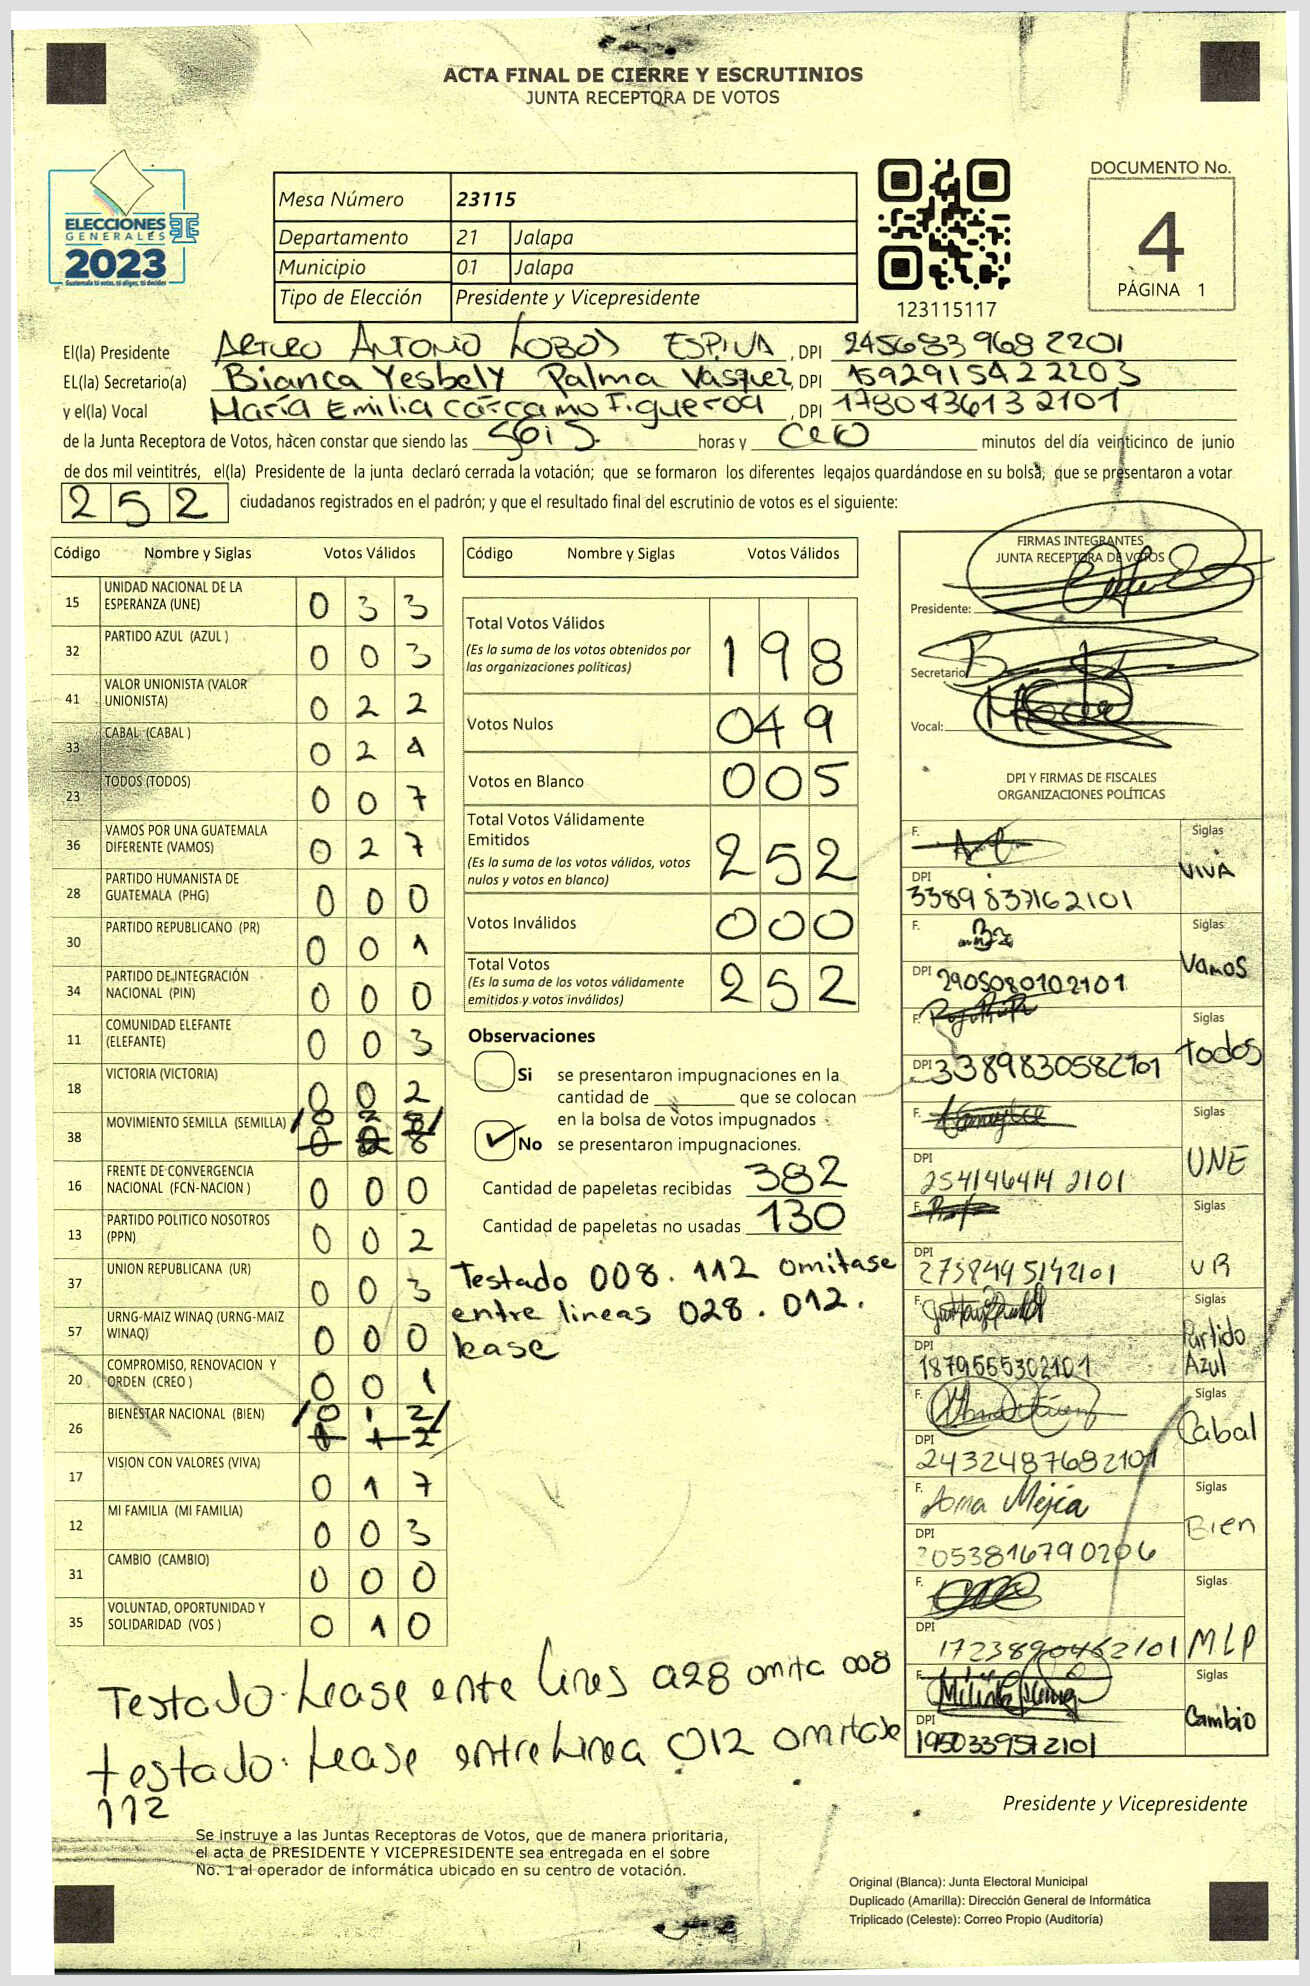 ACTA FINAL DE CIERRE Y ESCRUTINIOS
JUNTA RECEPTORA DE VOTOS
ELECCIONES
GENERALES
2023
Guatemala tú votas, tú eliges, tú decides
Mesa Número 23115
Departamento 21 Jalapa
Municipio 01 Jalapa
Tipo de Elección Presidente y Vicepresidente
123115117
DOCUMENTO No.
4
PÁGINA 1
El(la) Presidente ARTURO ANTONIO LOBOS ESPINA, DPI 2456839682201
EL(la) Secretario(a) Bianca Yesbely Palma Vasquez, DPI 1592915422203
y el(la) Vocal María Emilia Cárcamo Figueroa, DPI 1780436132101
de la Junta Receptora de Votos, hacen constar que siendo las seis horas y cero minutos del día veinticinco de junio
de dos mil veintitrés, el(la) Presidente de la junta declaró cerrada la votación; que se formaron los diferentes legajos guardándose en su bolsa, que se presentaron a votar
252 ciudadanos registrados en el padrón; y que el resultado final del escrutinio de votos es el siguiente:
Código Nombre y Siglas Votos Válidos
15 UNIDAD NACIONAL DE LA ESPERANZA (UNE) 0 3 3
32 PARTIDO AZUL (AZUL ) 0 0 3
41 VALOR UNIONISTA (VALOR UNIONISTA) 0 2 2
33 CABAL (CABAL ) 0 2 4
23 TODOS (TODOS) 0 0 7
36 VAMOS POR UNA GUATEMALA DIFERENTE (VAMOS) 0 2 7
28 PARTIDO HUMANISTA DE GUATEMALA (PHG) 0 0 0
30 PARTIDO REPUBLICANO (PR) 0 0 1
34 PARTIDO DE INTEGRACIÓN NACIONAL (PIN) 0 0 0
11 COMUNIDAD ELEFANTE (ELEFANTE) 0 0 3
18 VICTORIA (VICTORIA) 0 0 2
38 MOVIMIENTO SEMILLA (SEMILLA) /0 2 8/
0 0 8
16 FRENTE DE CONVERGENCIA NACIONAL (FCN-NACION ) 0 0 0
13 PARTIDO POLITICO NOSOTROS (PPN) 0 0 2
37 UNION REPUBLICANA (UR) 0 0 3
57 URNG-MAIZ WINAQ (URNG-MAIZ WINAQ) 0 0 0
20 COMPROMISO, RENOVACION Y ORDEN (CREO ) 0 0 1
26 BIENESTAR NACIONAL (BIEN) /0 1 2/
1 1 2
17 VISION CON VALORES (VIVA) 0 1 7
12 MI FAMILIA (MI FAMILIA) 0 0 3
31 CAMBIO (CAMBIO) 0 0 0
35 VOLUNTAD, OPORTUNIDAD Y SOLIDARIDAD (VOS ) 0 1 0
Código Nombre y Siglas Votos Válidos
Total Votos Válidos 198
(Es la suma de los votos obtenidos por
las organizaciones políticas)
Votos Nulos 049
Votos en Blanco 005
Total Votos Válidamente
Emitidos 252
(Es la suma de los votos válidos, votos
nulos y votos en blanco)
Votos Inválidos 000
Total Votos 252
(Es la suma de los votos válidamente
emitidos y votos inválidos)
Observaciones
Si se presentaron impugnaciones en la
cantidad de ________ que se colocan
en la bolsa de votos impugnados
No se presentaron impugnaciones.
Cantidad de papeletas recibidas 382
Cantidad de papeletas no usadas 130
Testado 008. 112 omitase
entre lineas 028. 012.
lease
FIRMAS INTEGRANTES
JUNTA RECEPTORA DE VOTOS
Presidente:
Secretario
Vocal:
DPI Y FIRMAS DE FISCALES
ORGANIZACIONES POLÍTICAS
F. Siglas VIVA
DPI 3389837162101
F. Siglas Vamos
DPI 2905080102101
F. Siglas Todos
DPI 3389830582101
F. Siglas UNE
DPI 2541464142101
F. Siglas UR
DPI 27384495142101
F. Siglas Partido Azul
DPI 1879555302101
F. Siglas Cabal
DPI 2432487682101
F. Anna Mejía Siglas Bien
DPI 2053816790206
F. Siglas MLP
DPI 1723890462101
F. Siglas Cambio
DPI 1950339512101
Testado: Lease ente lines 028 omita 008
testado: Lease entre Linea 012 omitase
112
Presidente y Vicepresidente
Se instruye a las Juntas Receptoras de Votos, que de manera prioritaria,
el acta de PRESIDENTE Y VICEPRESIDENTE sea entregada en el sobre
No. 1 al operador de informática ubicado en su centro de votación.
Original (Blanca): Junta Electoral Municipal
Duplicado (Amarilla): Dirección General de Informática
Triplicado (Celeste): Correo Propio (Auditoría)